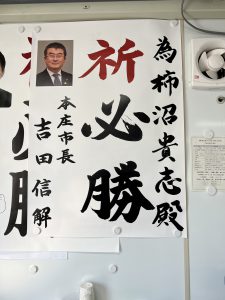 為柿沼貴志殿
祈必勝
本庄市長
吉田信解
祈必勝